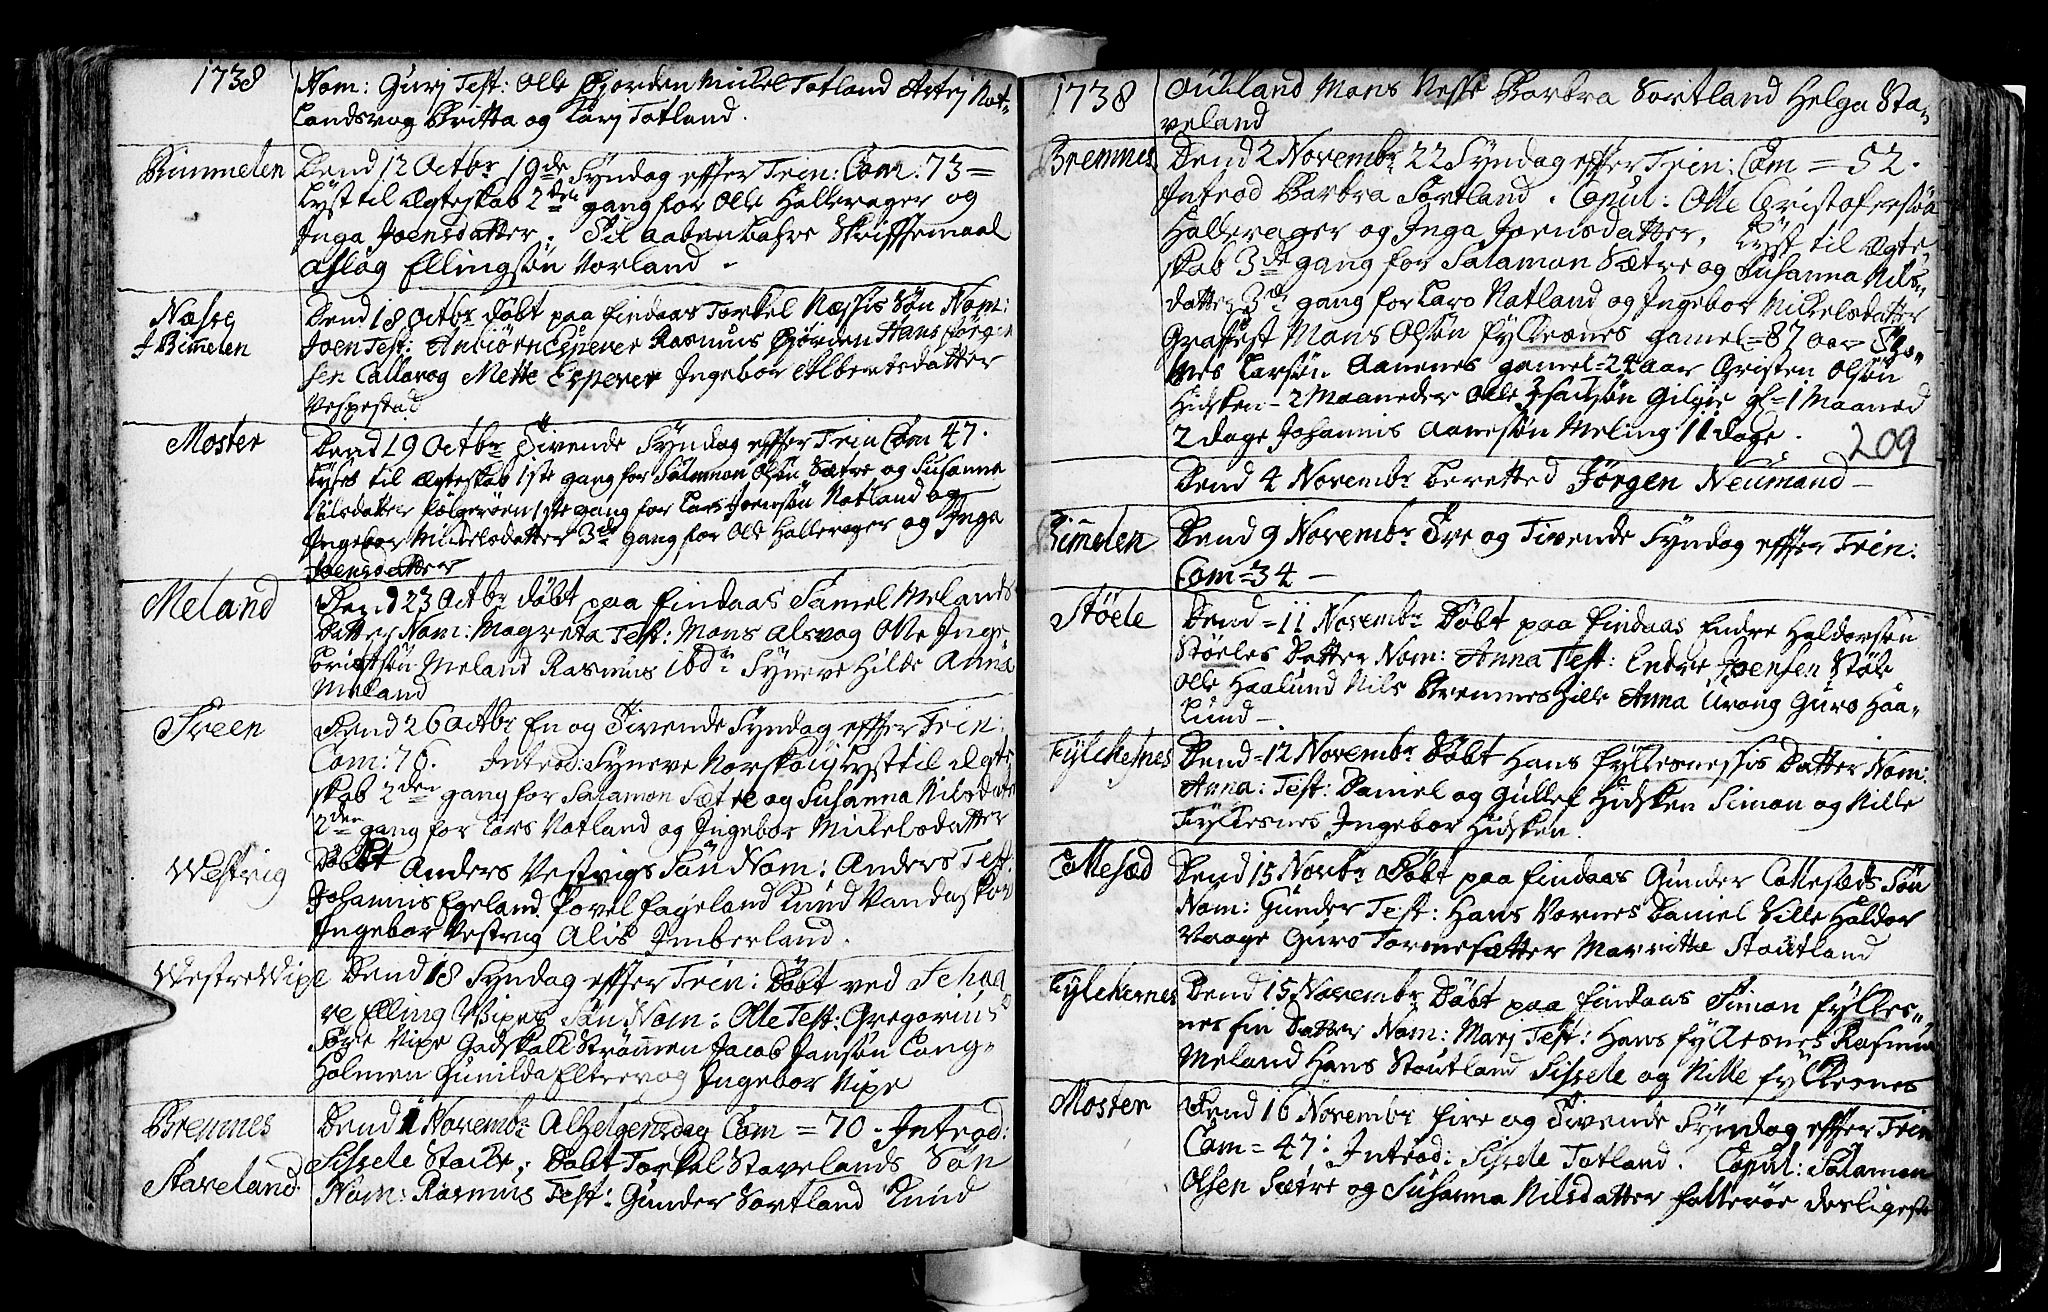 1738
Nom: Gurj Test: Olle Gjorden Mickel Totland
Landsvog Britta og Karj Totland.
Bimmelen
Dend 12 Octbr 19de Syndag effter Trin: Com: 73=
Lyst til Ægteskab 2den gang for Olle Hallerager og
Inga Joensdatter. Til aabenbahre Skriftemaal
Aslag Ellingsön Vorland -
Næsse
Bimelen
Dend 18 Octbr döbt paa Findaas Torkel Næssis Sön Nom:
Joen Test: Rasmus Gjörden Hans
sen Callavog Mette Esperer Ingebor Albertsdatter
Vespestad
Moster
Dend 19 Octbr Tivende Syndag effter Trin Com 47.
til Ægteskab 1ste gang for Salamon Olsön Sætre og Susanna
Nilsdatter 1ste gang for Lars Joensön Natland og
Ingebor Mickelsdatter 3de gang for Olle Hallerager og Inga
Joensdatter
Meland
Dend 23 Octbr döbt paa Findaas Samel Melands
Datter Nom: Magreta Test: Mons Alsvog Olle Inge
britsön Meland Rasmus ibdm Syneve Hilde Anna
Meland
Sveen
Dend 26 Octbr En og Tivende Syndag effter Trin:
Com: 76. Introd: Syneve Lyst til Ægte
skab 2den gang for Salamon Sætre og Susanna Nilsdatter
2den gang for Lars Natland og Ingebor Mickelsdatter
Westvig
Döbt Anders Vestvigs Sön Nom: Anders Test:
Johannis Egeland Povel Fageland Knud Vandaskor
Ingebor Vestvig Alis Imberland.
Westre Wixe
Dend 18 Syndag effter Trin: Döbt ved
Elling Vixes Sön Nom: Olle Test: Gregorius
Vixe Godskalk Strömmen Jacob Jansön Lang=
holmen Gunilda Eltrevog Ingebor Vixe
Bremnes
Dend 1 Novembr Alhelgensdag Com = 70. Introd:
Staveland
Sissele Döbt Torkel Stavelands Sön
Nom: Rasmus Test: Gunder Sortland Knud
1738
Aukland Mons Nesse Barbra Sortland Helga Sta=
veland
Bremnes
Dend 2 Novembr 22 Syndag effter Trin: Com = 52.
Introd Barbra Sortland. Copul: Olle Christofersön
Hallerager og Inga Joensdatter. Lyst til Ægte
skab 3de gang for Salamon Sætre og Susanna Nils=
datter 3de gang for Lars Natland og Ingebor Mickelsdatter
Grafæst Mons Olsön Fyllesnes gamel=87 aar
nes Larsön Aanenes gamel=24 aar Cristen Olsön
Hidsken - 2 Maaneder Olle Isacsön Gilgie gl=1 Maaned
2 dage Johannis Aanesön Meling 11 dage.
209
Dend 4 Novembr Beretted Jörgen Neumand -
Bimelen
Dend 9 Novembr Tre og Tivende Syndag effter Trin:
Com=34 -
Stöele
Dend = 11 Novembr Döbt paa Findaas Endre Haldorsön
Stöeles Datter Nom: Anna Test: Endre Joensen Stöle
Olle Haalund Nils Bremnes Zille Anna Urang Guro Haa=
lund -
Fylckesnes
Dend = 12 Novembr Döbt Hans Fyllesnessis Datter Nom:
Anna: Test: Daniel og Gullef Hidsken Simon og Nille
Fyllesnes Ingebor Hidsken.
Collesæd
Dend 15 Novbr Döbt paa Findaas Gunder Collesæds Sön
Nom: Gunder Test: Hans Vornes Daniel Ville Haldor
Vaage Guro Tormesætter Marritta Stoutland
Fylckesnes
Dend 15 Novembr Döbt paa Findaas Simon Fylles=
nes sin Datter Nom: Marj Test: Hans Fyllesnes Rasmus
Meland Hans Stoutland Sissele og Nille Fyllesnes
Moster
Dend 16 Novembr Fire og Tivende Syndag effter Trin
Com = 47: Introd: Sissele Totland. Copul: Salamon
Olsen Sætre og Susanna Nilsdatter Folleröe